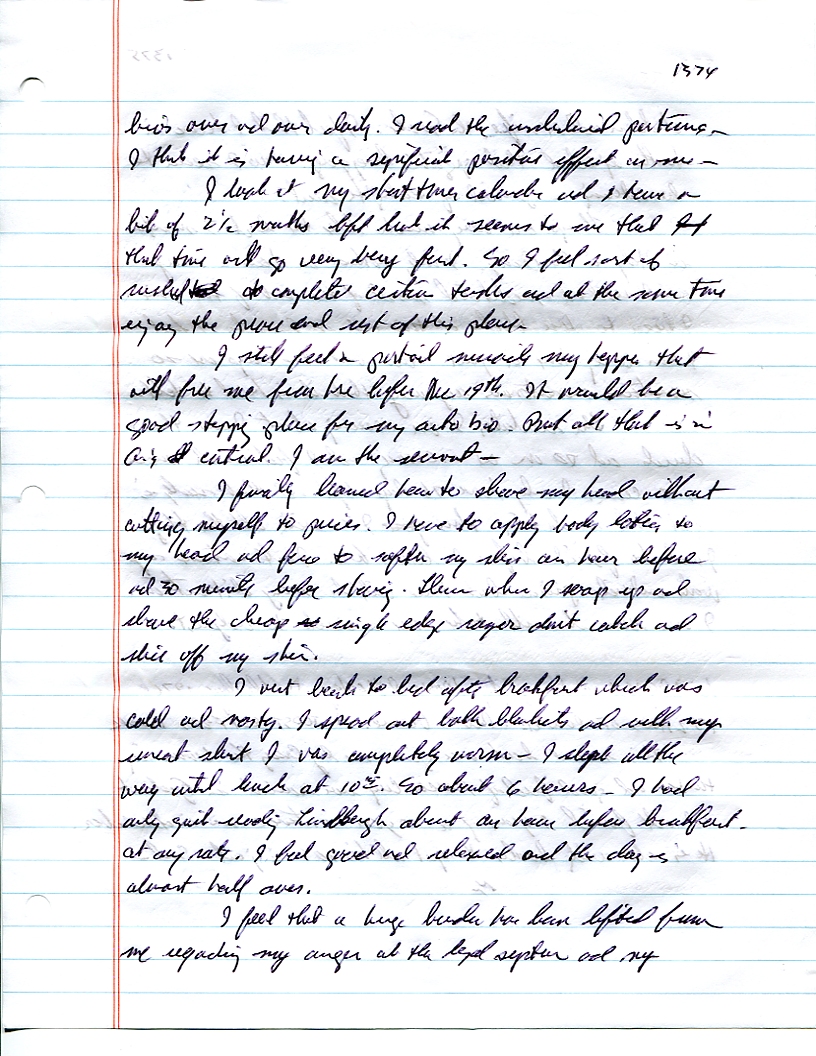 1374
over and over daily. I read the underlined portions -
I think it is having a significant positive effect on me -
I look at my short timer calendar and I have a
bit of 2 1/2 months left but it seems to me that
that time will go very very fast. So I feel sort of
rushed to complete certain tasks and at the same time
enjoy the peace and rest of this place -
I still feel a miracle may happen that
will free me from here before Dec 19th. It would be a
good stopping place for my auto bio. But all that is in
control. I am the servant -
I finally learned how to shave my head without
cutting myself to pieces. I have to apply body lotion to
my head and face to soften my skin an hour before
and 30 minutes before shaving. Then when I soap up and
shave the cheap single edge razor don't catch and
slice off my skin.
I went back to bed after breakfast which was
cold and nasty. I spread out both blankets and with my
sweat shirt I was completely warm - I slept all the
way until lunch at 10. So about 6 hours - I had
only quit reading Lindbergh about an hour before breakfast -
at any rate. I feel good and relaxed and the day is
almost half over.
I feel that a huge burden has been lifted from
me regarding my anger at the legal system and my